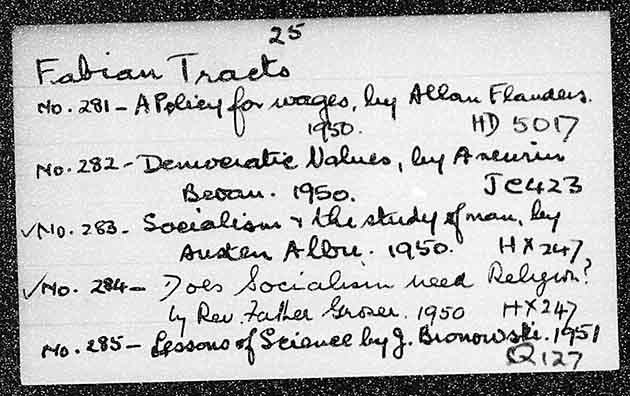 25
Fabian Tracts
No. 281 - A Policy for wages, by Allan Flanders.
1950. HD 5017
No. 282 - Democratic Values, by Aneurin
Bevan. 1950. JC423
✓No. 283 - Socialism & the study of man, by
Austen Albu. 1950. HX247
✓No. 284 - Does Socialism need Religion?
by Rev. Father Groser. 1950 HX247
No. 285 - Lessons of Science by J. Bronowski. 1951
Q127